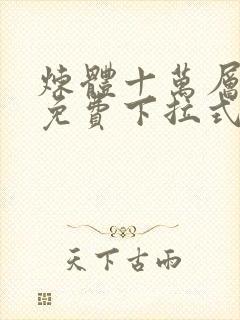 煉體十萬層
免費下拉式
天下古雨